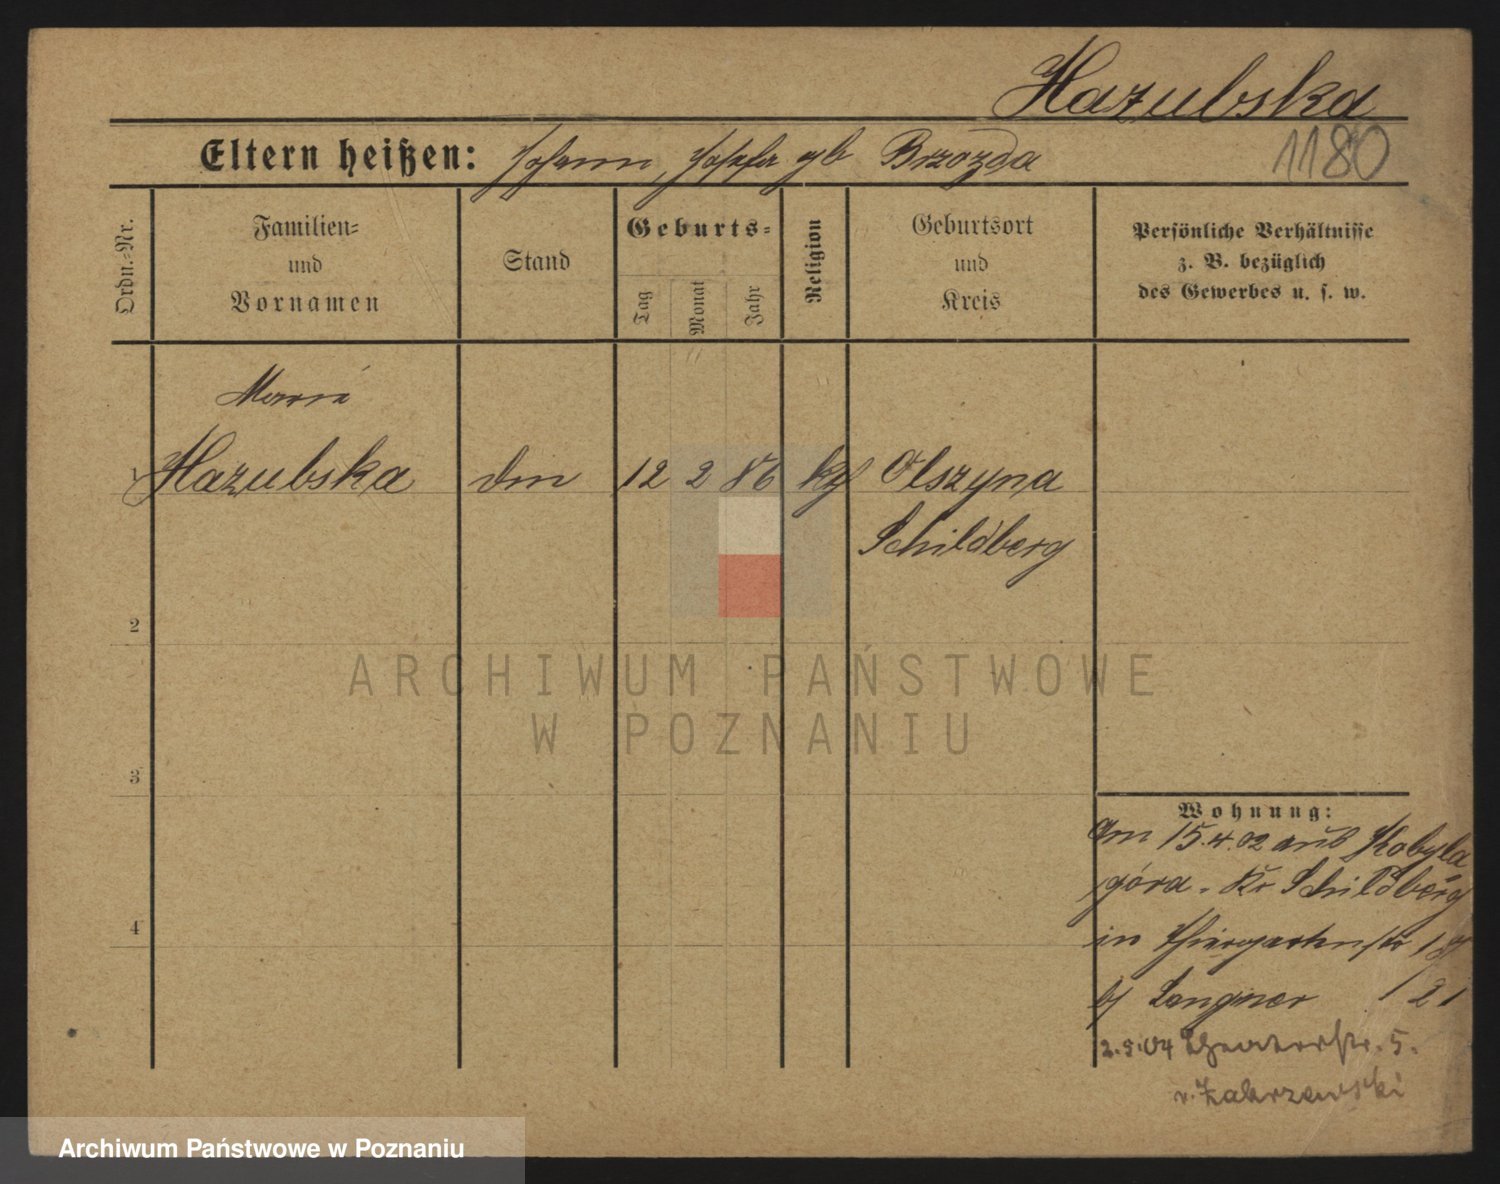 Hazubska
1180
Eltern heißen: Johann, Josefa gb Brzozda
Ordn.-Nr.
Familien-
und
Vornamen
Stand
Geburts-
Tag
Monat
Jahr
Religion
Geburtsort
und
Kreis
Persönliche Verhältnisse
z. B. bezüglich
des Gewerbes u. s. w.
Maria
1 Hazubska dm 12 2 86 kf Olszyna
Schildberg
2
3
4
ARCHIWUM PAŃSTWOWE
W POZNANIU
Wohnung:
Am 15.4.02 aus Kobyla
góra. Kr Schildberg
in Thiergartenstr
bj Langner
2.5.04 Theaterstr. 5.
v. Zakrzewski
Archiwum Państwowe w Poznaniu